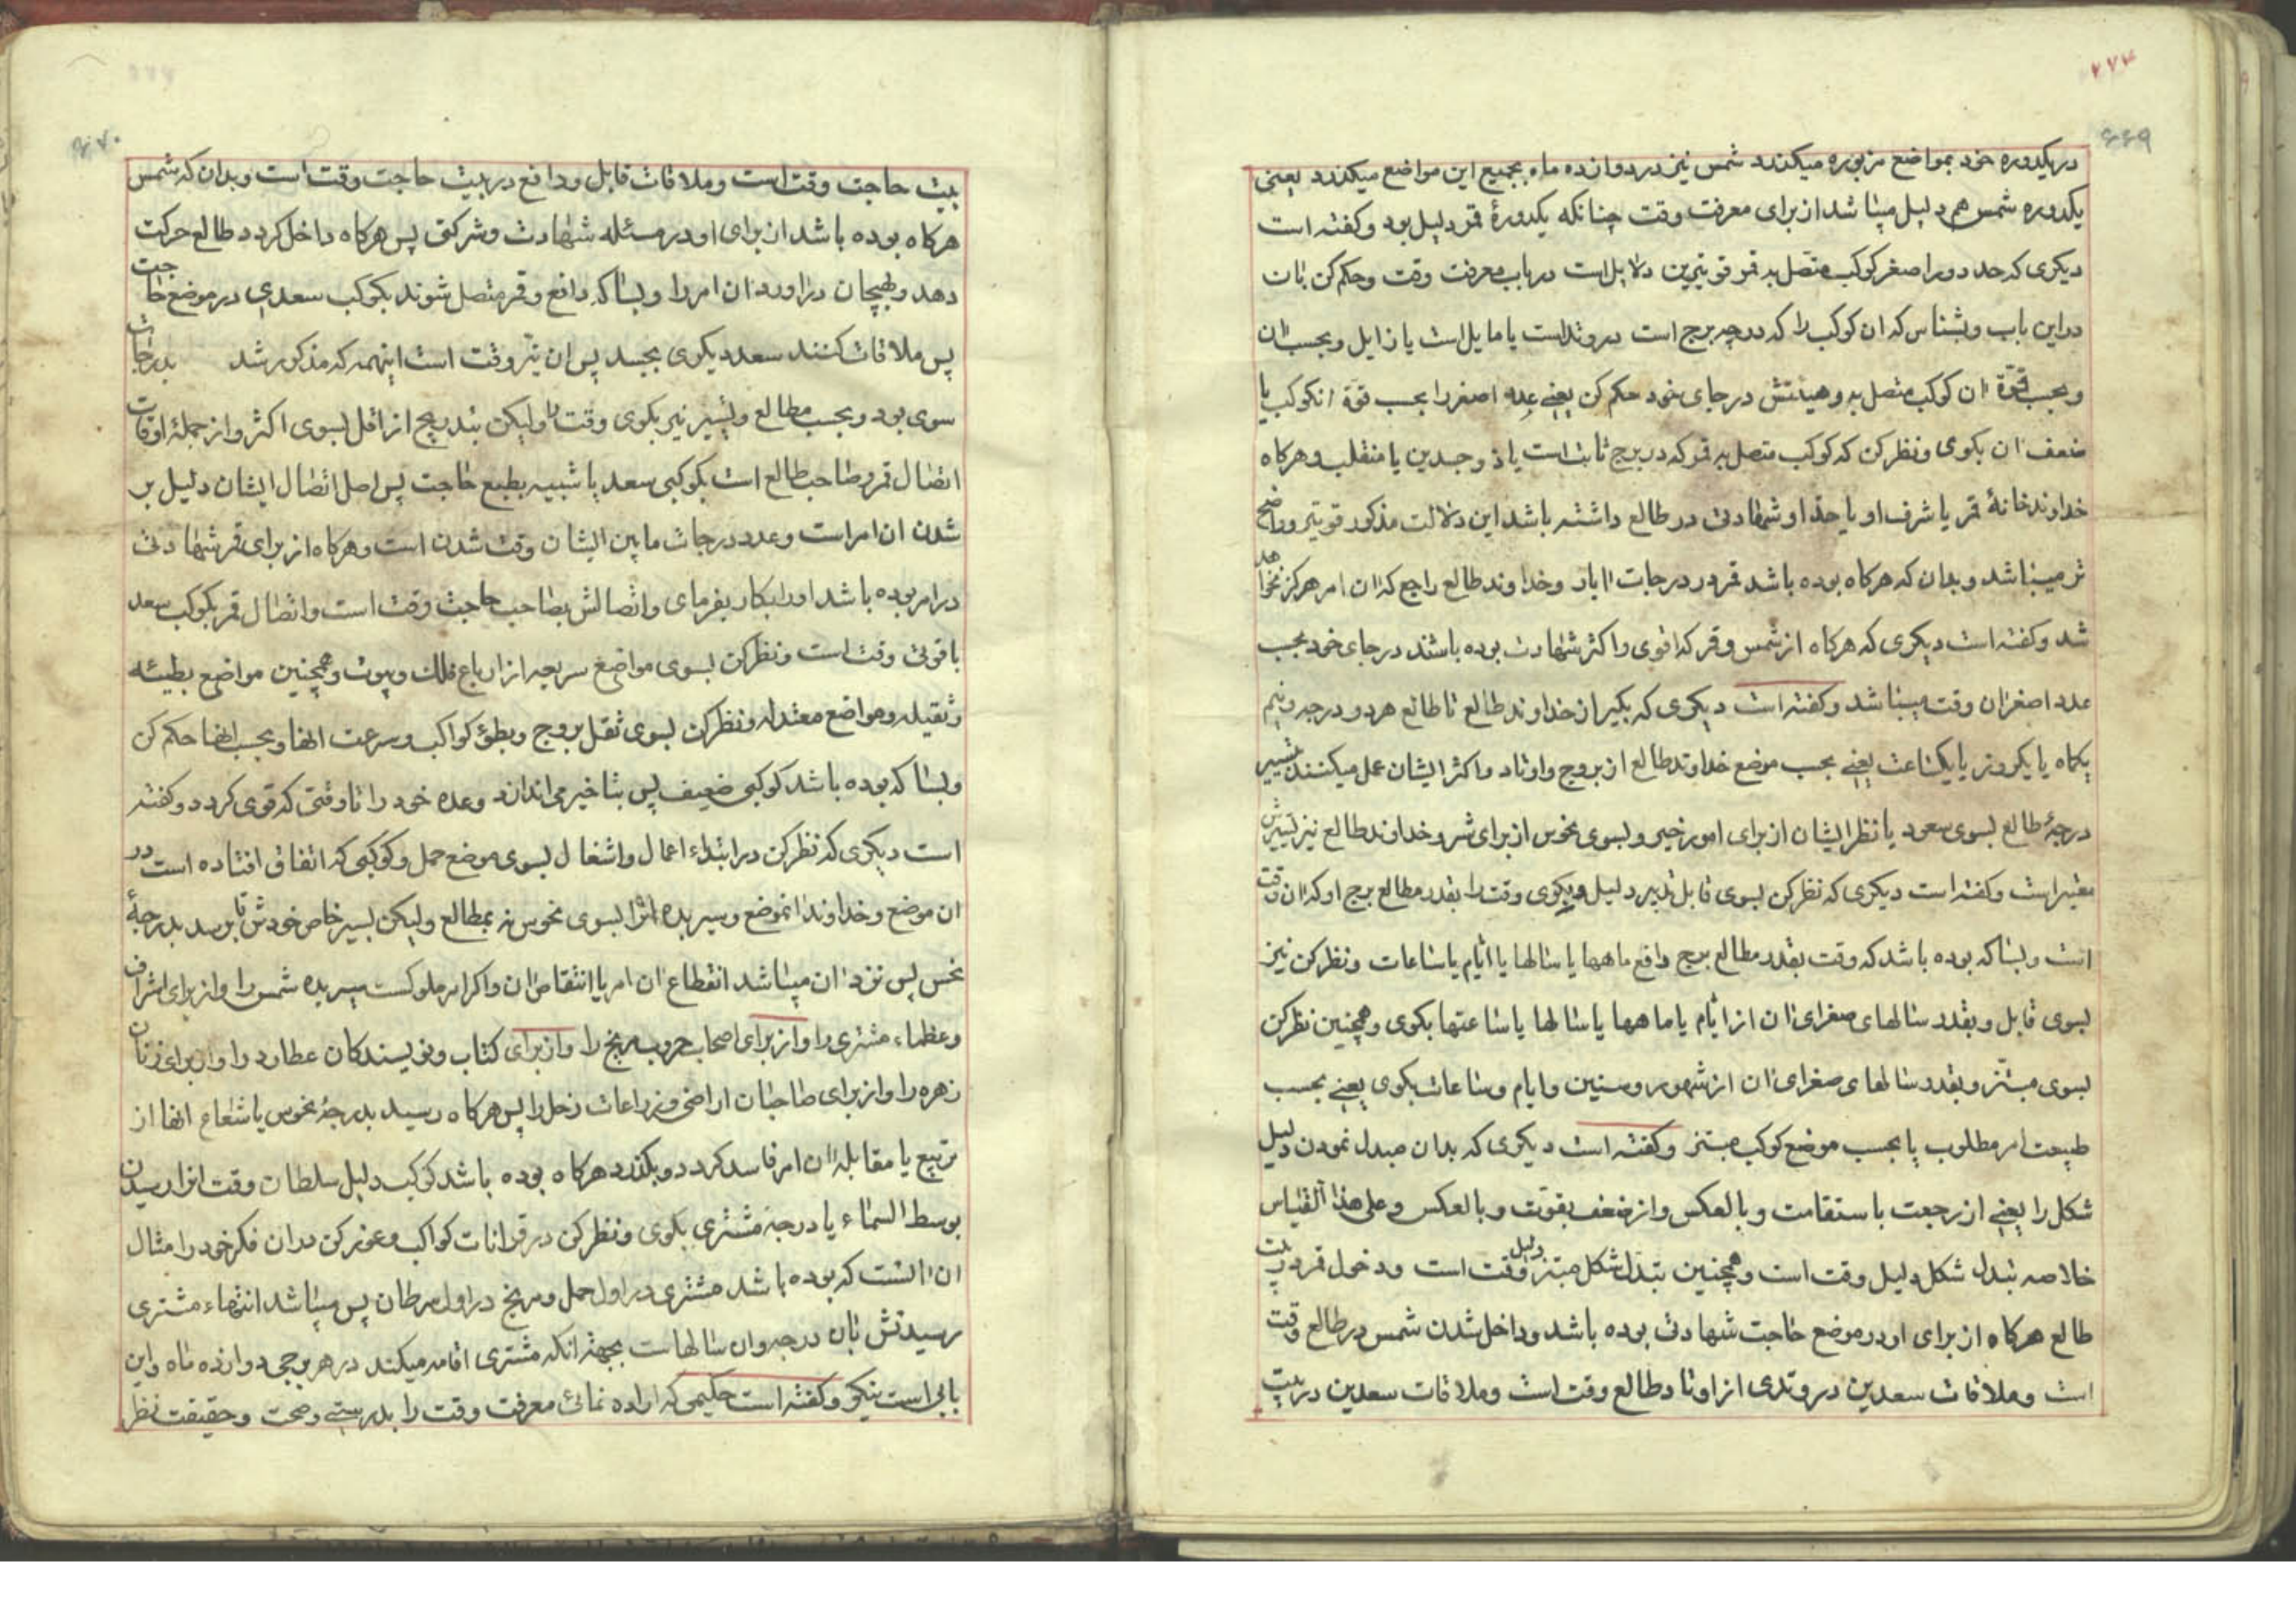 ۲۷۴
۶۶۹
در یکدوره خود بمواضع مزبوره میکذرد شمس نیز در دوازده ماه بجمیع این مواضع میکذرد یعنی
یکدوره شمس هم دلیل میباشد از برای معرفت وقت چنانکه یکدورهٔ قمر دلیل بود و کفته است
دیکری که حد دور اصغر کوکب متصل به قمر قویترین دلایل است در باب معرفت وقت و حکم کن بان
در این باب و بشناس که ان کوکب را که در چه برج است در وتد است یا مایل است یا زایل و بحسب ان
و بحسب قوّة ان کوکب متصل به و هیئتش در جای خود حکم کن یعنی عدد اصغر را بحسب قوّة انکوکب یا
ضعف ان بکوی و نظر کن که کوکب متصل به قمر که در برج ثابت است یا ذو جسدین یا منقلب و هرکاه
خداوند خانهٔ قمر یا شرف او یا حد او شهادتی در طالع داشته باشد این دلالت مذکور قویتر و واضح
تر میباشد و بدان که هرکاه بوده باشد قمر در درجات ابار و خداوند طالع راجع که ان امر هرکز نخواهد
شد و کفته است دیکری که هرکاه از شمس و قمر که اقوی و اکثر شهادت بوده باشند در جای خود بحسب
عدد اصغر ان وقت میباشد و کفته است دیکری که بکیر از خداوند طالع تا طالع هر دو درجه و نیم
یکماه یا یکروز یا یکساعت یعنی بحسب موضع خداوند طالع از بروج و اوتاد و اکثر ایشان عمل میکنند بتسییر
درجهٔ طالع بسوی سعود یا نظر ایشان از برای امور خیر و بسوی نحوس از برای شر و خداوند طالع نیز تسییرش
معتبر است و کفته است دیکری که نظر کن بسوی قابل تدبیر دلیل و بکوی وقت را بقدر مطالع برج او که ان وقت
است و بسا که بوده باشد که وقت بقدر مطالع برج دافع ماهها یا سالها یا ایّام یا ساعات و نظر کن نیز
بسوی قابل و بقدر سالهای صغرای ان از ایّام یا ماهها یا سالها یا ساعتها بکوی و همچنین نظر کن
بسوی مبتز و بقدر سالهای صغرای ان از شهور و سنین و ایام و ساعات بکوی یعنی بحسب
طبیعت امر مطلوب یا بحسب موضع کوکب مبتز و کفته است دیکری که بدان مبدل نمودن دلیل
شکل را یعنی از رجعت باستقامت و بالعکس و از ضعف بقوّت و بالعکس و علی هذا القیاس
خلاصه تبدل شکل دلیل وقت است و همچنین تبدّل شکل مبتز دلیل وقت است و دخول قمر در بیت
طالع هرکاه از برای او در موضع حاجت شهادتی بوده باشد و داخل شدن شمس در طالع وقت
است و ملاقات سعدین در وتدی از اوتاد طالع وقت است و ملاقات سعدین در بیت
۶۷۰
بیت حاجت وقت است و ملاقات قابل و دافع در بیت حاجت وقت است و بدان که شمس
هرکاه بوده باشد از برای او در مسئله شهادت و شرکتی پس هرکاه داخل کردد طالع حرکت
دهد و بهیجان دراورد ان امر را و بسا که دافع و قمر متصل شوند بکوکب سعدی در موضع حاجت
پس ملاقات کنند سعد دیکری بجسد پس ان نیز وقت است اینهمه که مذکور شد بدرجات
سوی بود و بحسب مطالع و تسییر نیز بکوی وقت را ولیکن بتدریج از اقل بسوی اکثر و از جملهٔ اوقات
اتصال قمر و صاحب طالع است بکوکبی سعد یا شبیه بطبع حاجت پس اصل اتصال ایشان دلیل بر
شدن ان امر است و عدد درجات مابین ایشان وقت شدن است و هرکاه از برای قمر شهادتی
در امر بوده باشد او را بکار بفرمای و اتصالش بصاحب حاجت وقت است و اتصال قمر بکوکب سعد
با قوتی وقت است و نظر کن بسوی مواضع سریعه از ارباع فلک و بیوت و همچنین مواضع بطیئه
و ثقیله و مواضع معتدله و نظر کن بسوی ثقل بروج و بطؤ کواکب و سرعت انها و بحسب انها حکم کن
و بسا که بوده باشد کوکبی ضعیف پس بتاخیر می اندازد وعده خود را تا وقتی که قوی کردد و کفته
است دیکری که نظر کن در ابتداء اعمال و اشغال بسوی موضع حمل و کوکبی که اتفاق افتاده است در
ان موضع و خداوند انموضع و سیر بده انرا بسوی نحوس نه بمطالع ولیکن بسیر خاص خودش تا برسد بدرجهٔ
نحس پس نزد ان میباشد انقطاع ان امر یا انتقاص ان و اکر امر ملوکست سیر بده شمس را و از برای اشراف
و عظماء مشتری را و از برای اصحاب حروب مریخ را و از برای کتاب و نویسندکان عطارد را و از برای زنان
زهره را و از برای صاحبان اراضی و زراعات زحل را پس هرکاه رسید بدرجهٔ نحوس یا شعاع انها از
تربیع یا مقابله ان امر فاسد کردد و بکذرد هرکاه بوده باشد کوکب دلیل سلطان وقت انرا رسیدن
بوسط السماء یا درجهٔ مشتری بکوی و نظر کن در قرانات کواکب و غور کن در ان فکر خود را مثال
ان انست که بوده باشد مشتری در اول حمل و مریخ در اول سرطان پس میباشد انتهاء مشتری
رسیدنش بان درجه و ان سالهاست بجهته انکه مشتری اقامه میکند در هر برجی دوازده ماه و این
بابی است نیکو و کفته است حکیمی که اراده نمائی معرفت وقت را بدرستی و صحت و حقیقت نظر